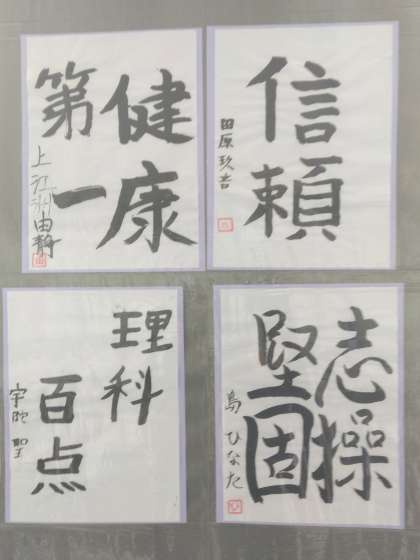 健康
第一
上江洲由静
信頼
田原玖吉
理科
百点
宇陀 聖
志操
堅固
島 ひなた